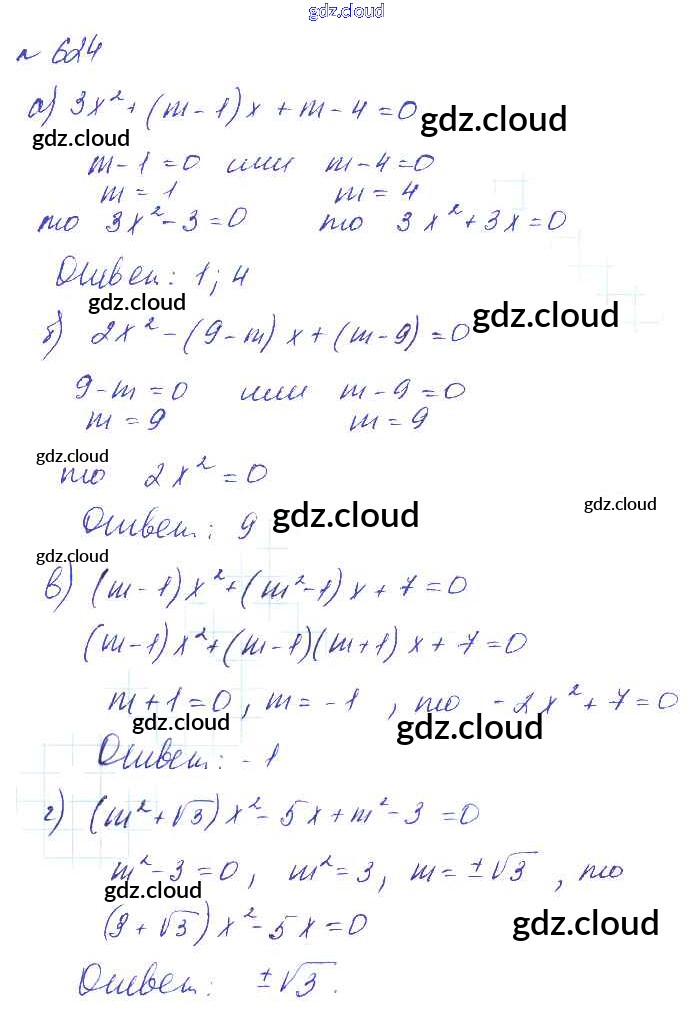 gdz.cloud
№ 624
а) 3x² + (m - 1)x + m - 4 = 0 gdz.cloud
gdz.cloud
m - 1 = 0 или m - 4 = 0
m = 1 m = 4
то 3x² - 3 = 0 то 3x² + 3x = 0
Ответ: 1; 4
gdz.cloud
б) 2x² - (9 - m)x + (m - 9) = 0 gdz.cloud
9 - m = 0 или m - 9 = 0
m = 9 m = 9
gdz.cloud
то 2x² = 0
Ответ: 9 gdz.cloud gdz.cloud
gdz.cloud
в) (m - 1)x² + (m² - 1)x + 7 = 0
(m - 1)x² + (m - 1)(m + 1)x + 7 = 0
m + 1 = 0, m = -1, то -2x² + 7 = 0
gdz.cloud gdz.cloud
Ответ: -1
г) (m² + √3)x² - 5x + m² - 3 = 0
m² - 3 = 0, m² = 3, m = ±√3, то
gdz.cloud
(3 + √3)x² - 5x = 0 gdz.cloud
Ответ: ±√3.